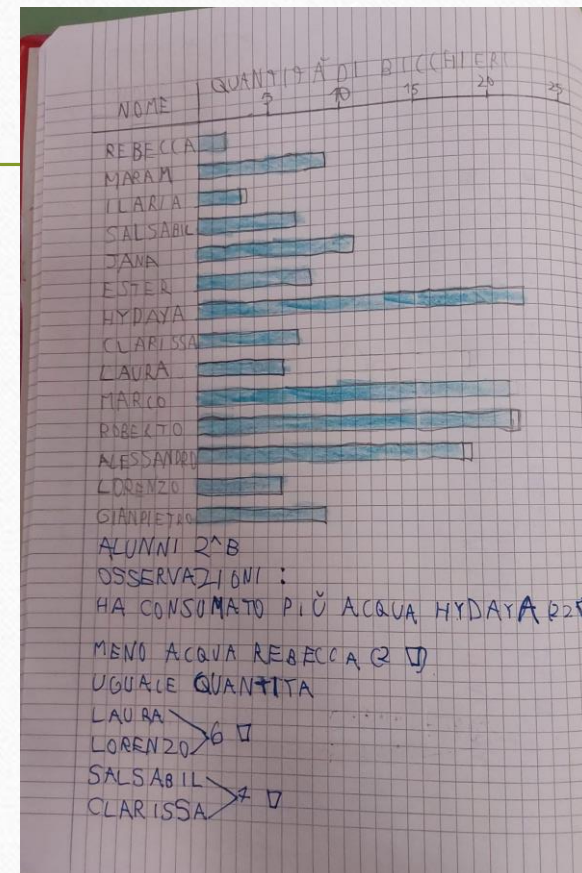 QUANTITÀ DI BICCHIERI
NOME 5 10 15 20 25
REBECCA
MARAM
ILARIA
SALSABIL
JANA
ESTER
HYDAYA
CLARISSA
LAURA
MARCO
ROBERTO
ALESSANDRO
LORENZO
GIANPIETRO
ALUNNI 2^B
OSSERVAZIONI :
HA CONSUMATO PIÙ ACQUA HYDAYA (22
MENO ACQUA REBECCA (2
UGUALE QUANTITA
LAURA
LORENZO 6
SALSABIL
CLARISSA 7